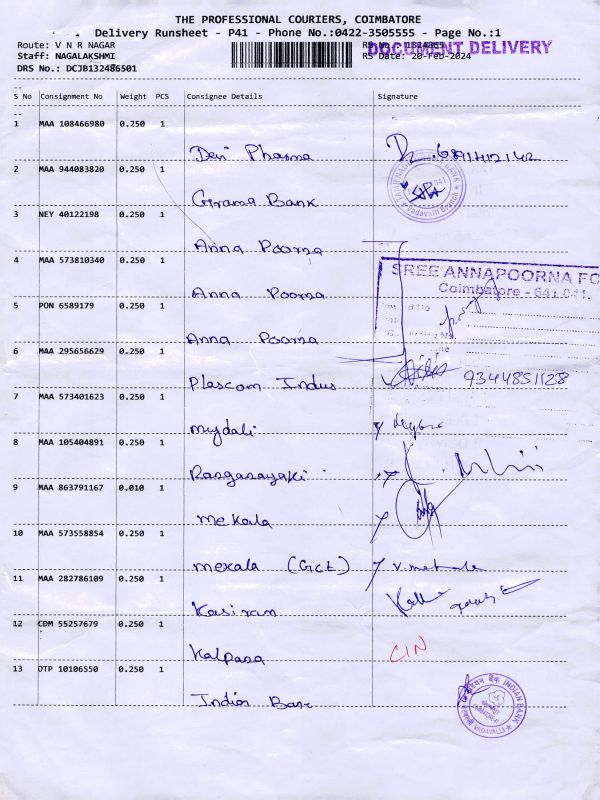 THE PROFESSIONAL COURIERS, COIMBATORE
Delivery Runsheet - P41 - Phone No.:0422-3505555 - Page No.:1
Route: V N R NAGAR
DOCUMENT DELIVERY
Staff: NAGALAKSHMI RS Date: 20-Feb-2024
DRS No.: DCJB132486501
S No Consignment No Weight PCS Consignee Details Signature
1 MAA 108466980 0.250 1 Devi Pharma
2 MAA 944083820 0.250 1 Grama Bank
3 NEY 40122198 0.250 1 Anna Poorna
4 MAA 573810340 0.250 1 Anna Poorna
SREE ANNAPOORNA FO
Coimbatore - 641 041.
5 PON 6589179 0.250 1 Anna Poorna
6 MAA 295656629 0.250 1 Plascom Indus 9344851128
7 MAA 573401623 0.250 1
8 MAA 105404891 0.250 1 Ranganayaki
9 MAA 863791167 0.010 1 Mekala
10 MAA 573558854 0.250 1 Mekala V. Mekala
11 MAA 282786109 0.250 1 Kasiram
12 CDM 55257679 0.250 1 Kalpana CIN
13 OTP 10106550 0.250 1 Indian Bank
INDIAN BANK
VADAVALLI